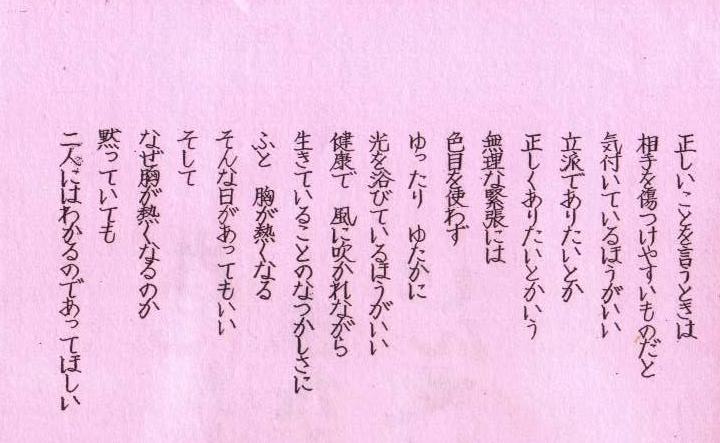 正しいことを言うときは
相手を傷つけやすいものだと
気付いているほうがいい
立派でありたいとか
正しくありたいとかいう
無理な緊張には
色目を使わず
ゆったり ゆたかに
光を浴びているほうがいい
健康で 風に吹かれながら
生きていることのなつかしさに
ふと 胸が熱くなる
そんな日があってもいい
そして
なぜ胸が熱くなるのか
黙っていても
二人にはわかるのであってほしい